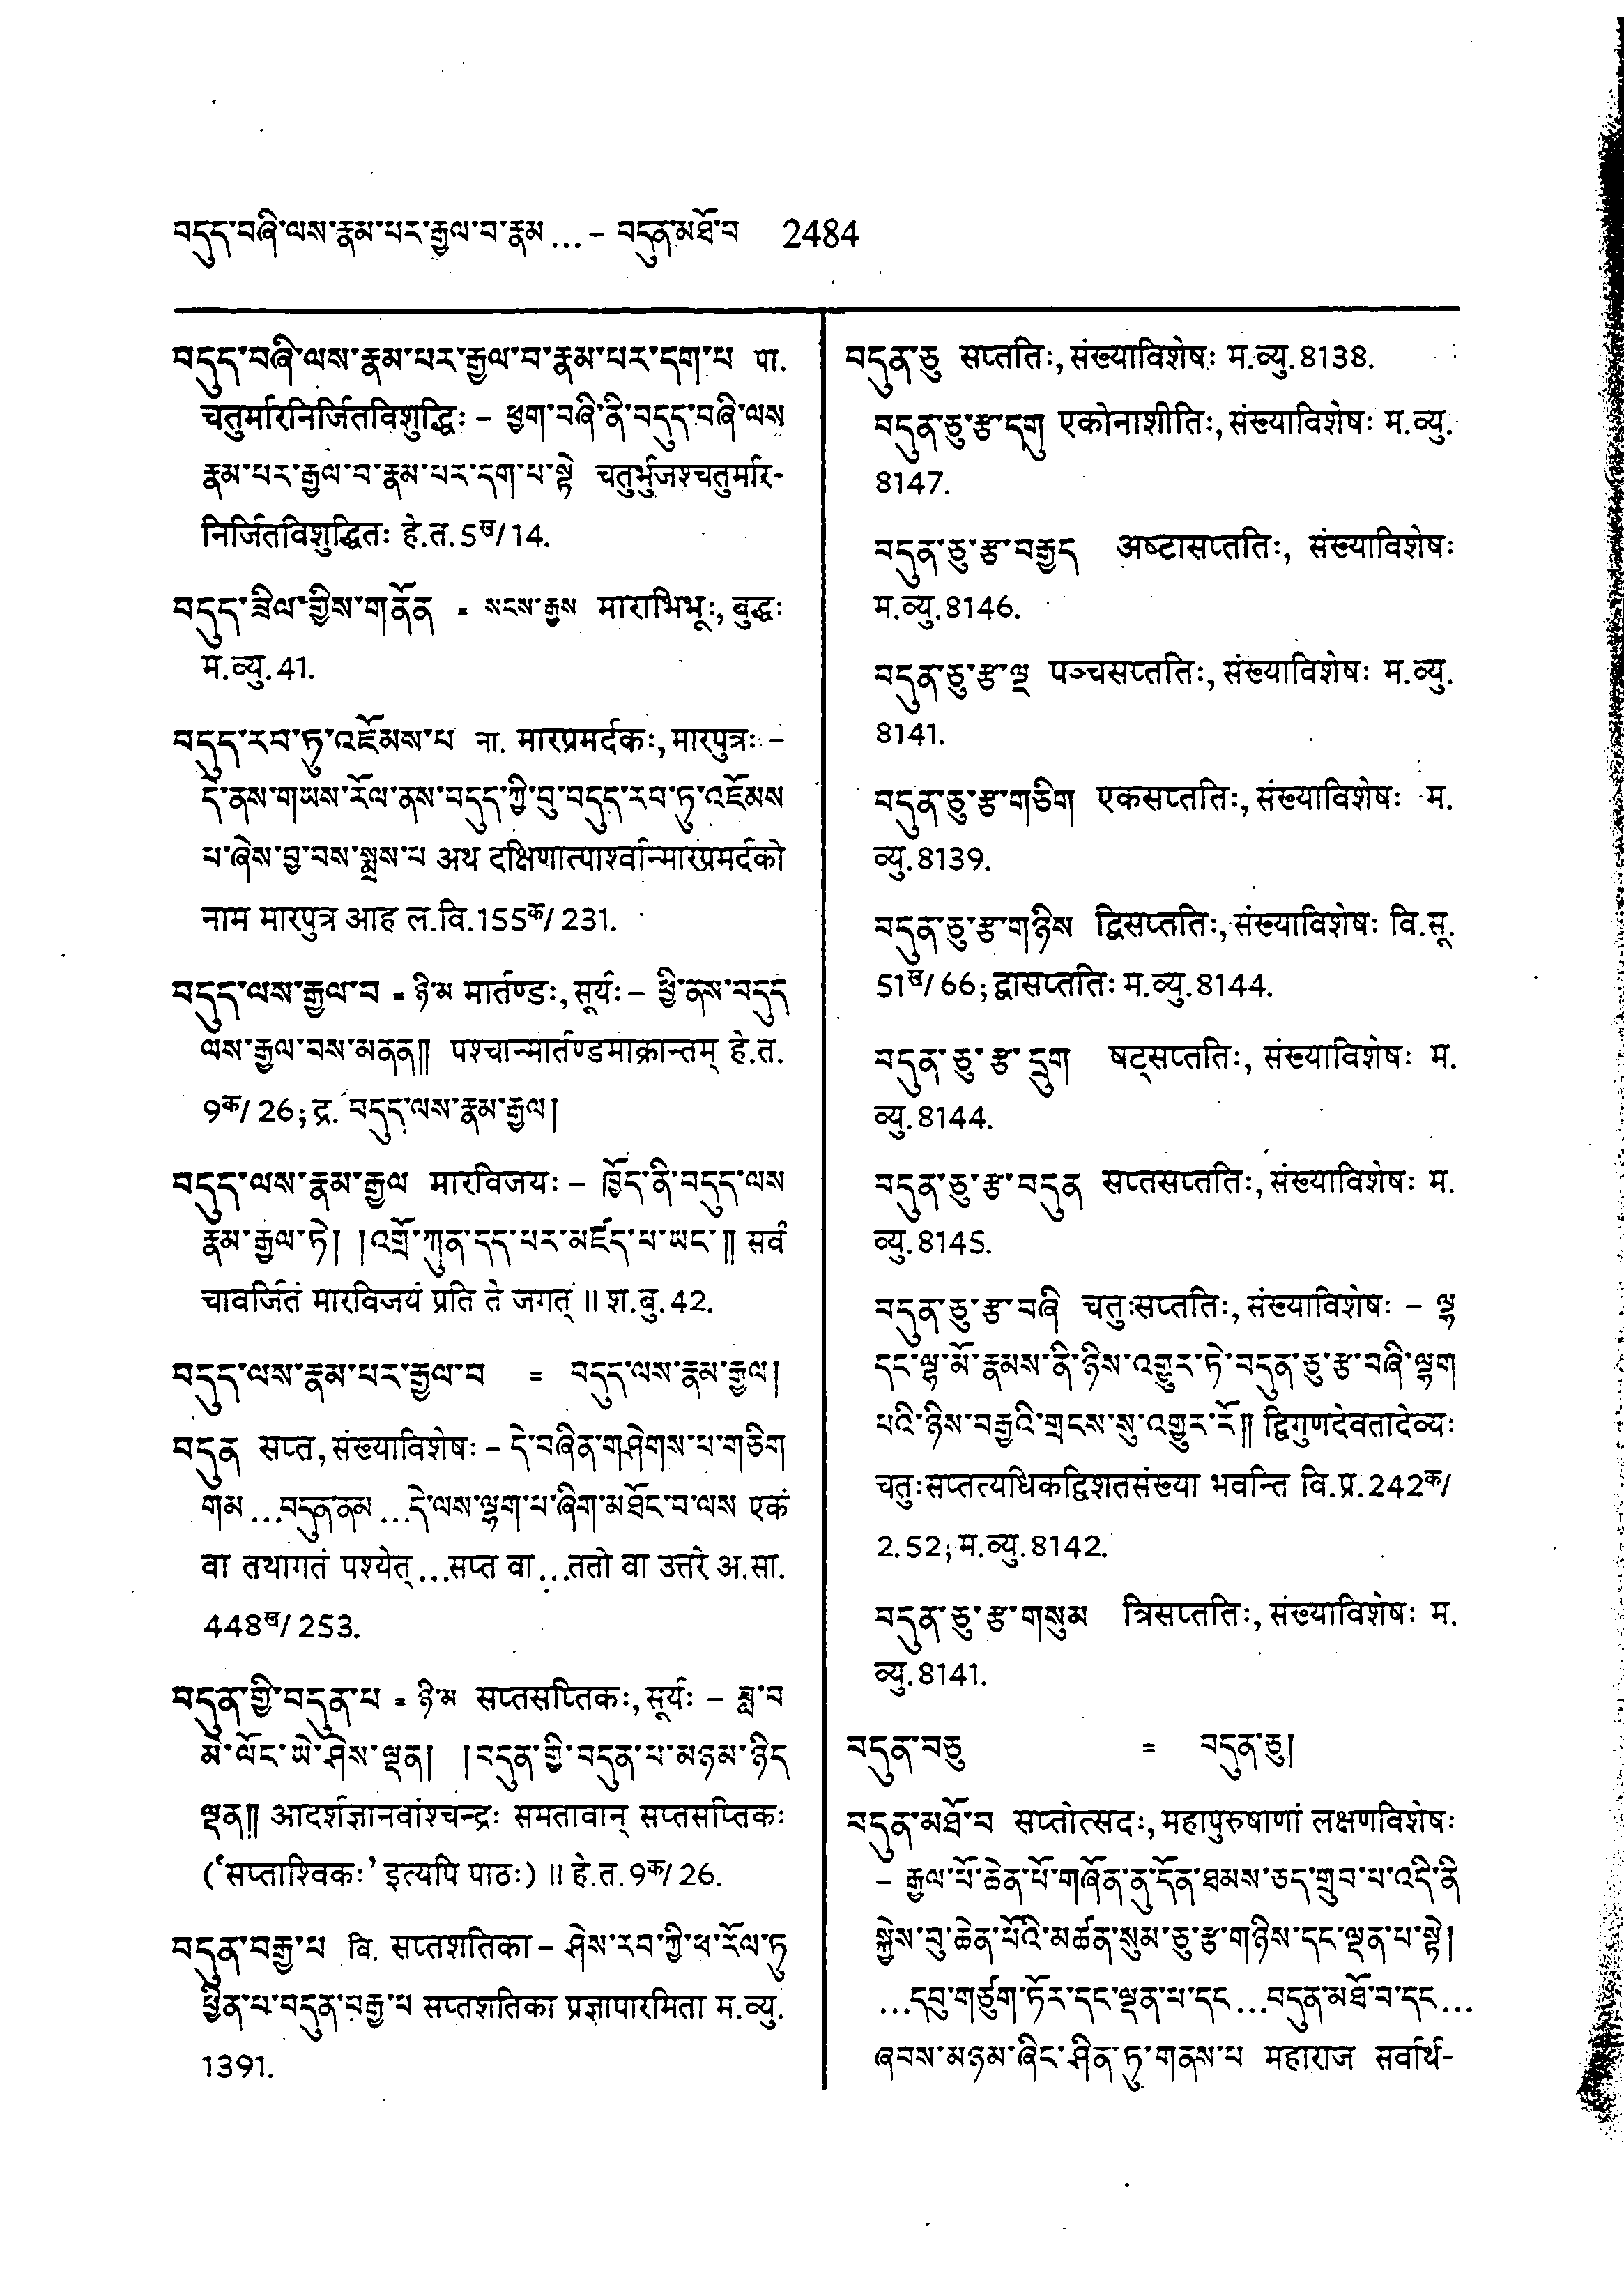 བདུད་བཞི་ལས་རྣམ་པར་རྒྱལ་བ་རྣམ ...– བདུན་མཐོ་བ 2484
བདུད་བཞི་ལས་རྣམ་པར་རྒྱལ་བ་རྣམ་པར་དག་པ पा.
चतुर्मारनिर्जितविशुद्धिः – ཕྱག་བཞི་ནི་བདུད་བཞི་ལས
རྣམ་པར་རྒྱལ་བ་རྣམ་པར་དག་པ་སྟེ चतुर्भुजश्चतुर्मार-
निर्जितविशुद्धितः हे.त.5ख/14.
བདུད་ཟིལ་གྱིས་གནོན = སངས་རྒྱས माराभिभूः, बुद्धः
म.व्यु.41.
བདུད་རབ་ཏུ་འཇོམས་པ ना. मारप्रमर्दकः, मारपुत्रः –
དེ་ནས་གཡས་རོལ་ནས་བདུད་ཀྱི་བུ་བདུད་རབ་ཏུ་འཇོམས
པ་ཞེས་བྱ་བས་སྨྲས་པ अथ दक्षिणात्पार्श्वान्मारप्रमर्दको
नाम मारपुत्र आह ल.वि.155क/231.
བདུད་ལས་རྒྱལ་བ = ཉི་མ मार्तण्डः, सूर्यः – ཕྱི་ནས་བདུད
ལས་རྒྱལ་བས་མནན།། पश्चान्मार्तण्डमाक्रान्तम् हे.त.
9क/26; द्र. བདུད་ལས་རྣམ་རྒྱལ།
བདུད་ལས་རྣམ་རྒྱལ मारविजयः – ཁྱོད་ནི་བདུད་ལས
རྣམ་རྒྱལ་ཏེ། །འགྲོ་ཀུན་དད་པར་མཛད་པ་ཡང་།། सर्वं
चावर्जितं मारविजयं प्रति ते जगत् ॥ श.बु.42.
བདུད་ལས་རྣམ་པར་རྒྱལ་བ = བདུད་ལས་རྣམ་རྒྱལ།
བདུན सप्त, संख्याविशेषः – དེ་བཞིན་གཤེགས་པ་གཅིག
གམ ...བདུན་ནམ ...དེ་ལས་ལྷག་པ་ཞིག་མཐོང་བ་ལས एकं
वा तथागतं पश्येत् ...सप्त वा ...ततो वा उत्तरे अ.सा.
448ख/253.
བདུན་གྱི་བདུན་པ = ཉི་མ सप्तसप्तिकः, सूर्यः – ཟླ་བ
མེ་ལོང་ཡེ་ཤེས་ལྡན། །བདུན་གྱི་བདུན་པ་མཉམ་ཉིད
ལྡན།། आदर्शज्ञानवांश्चन्द्रः समतावान् सप्तसप्तिकः
(‘सप्ताश्विकः’ इत्यपि पाठः) ॥ हे.त.9क/26.
བདུན་བརྒྱ་པ वि. सप्तशतिका – ཤེས་རབ་ཀྱི་ཕ་རོལ་ཏུ
ཕྱིན་པ་བདུན་བརྒྱ་པ सप्तशतिका प्रज्ञापारमिता म.व्यु.
1391.
བདུན་ཅུ सप्ततिः, संख्याविशेषः म.व्यु.8138.
བདུན་ཅུ་རྩ་དགུ एकोनाशीतिः, संख्याविशेषः म.व्यु.
8147.
བདུན་ཅུ་རྩ་བརྒྱད अष्टासप्ततिः, संख्याविशेषः
म.व्यु.8146.
བདུན་ཅུ་རྩ་ལྔ पञ्चसप्ततिः, संख्याविशेषः म.व्यु.
8141.
བདུན་ཅུ་རྩ་གཅིག एकसप्ततिः, संख्याविशेषः म.
व्यु.8139.
བདུན་ཅུ་རྩ་གཉིས द्विसप्ततिः, संख्याविशेषः वि.सू.
51ख/66; द्वासप्ततिः म.व्यु.8144.
བདུན་ཅུ་རྩ་དྲུག षट्सप्ततिः, संख्याविशेषः म.
व्यु.8144.
བདུན་ཅུ་རྩ་བདུན सप्तसप्ततिः, संख्याविशेषः म.
व्यु.8145.
བདུན་ཅུ་རྩ་བཞི चतुःसप्ततिः, संख्याविशेषः – ལྷ
དང་ལྷ་མོ་རྣམས་ནི་ཉིས་འགྱུར་ཏེ་བདུན་ཅུ་རྩ་བཞི་ལྷག
པའི་ཉིས་བརྒྱའི་གྲངས་སུ་འགྱུར་རོ།། द्विगुणदेवतादेव्यः
चतुःसप्तत्यधिकद्विशतसंख्या भवन्ति वि.प्र.242क/
2.52; म.व्यु.8142.
བདུན་ཅུ་རྩ་གསུམ त्रिसप्ततिः, संख्याविशेषः म.
व्यु.8141.
བདུན་བཅུ = བདུན་ཅུ།
བདུན་མཐོ་བ सप्तोत्सदः, महापुरुषाणां लक्षणविशेषः
– རྒྱལ་པོ་ཆེན་པོ་གཞོན་ནུ་དོན་ཐམས་ཅད་གྲུབ་པ་འདི་ནི
སྐྱེས་བུ་ཆེན་པོའི་མཚན་སུམ་ཅུ་རྩ་གཉིས་དང་ལྡན་པ་སྟེ།
...དབུ་གཙུག་ཏོར་དང་ལྡན་པ་དང ...བདུན་མཐོ་བ་དང ...
ཞབས་མཉམ་ཞིང་ཤིན་ཏུ་གནས་པ महाराज सर्वार्थ-